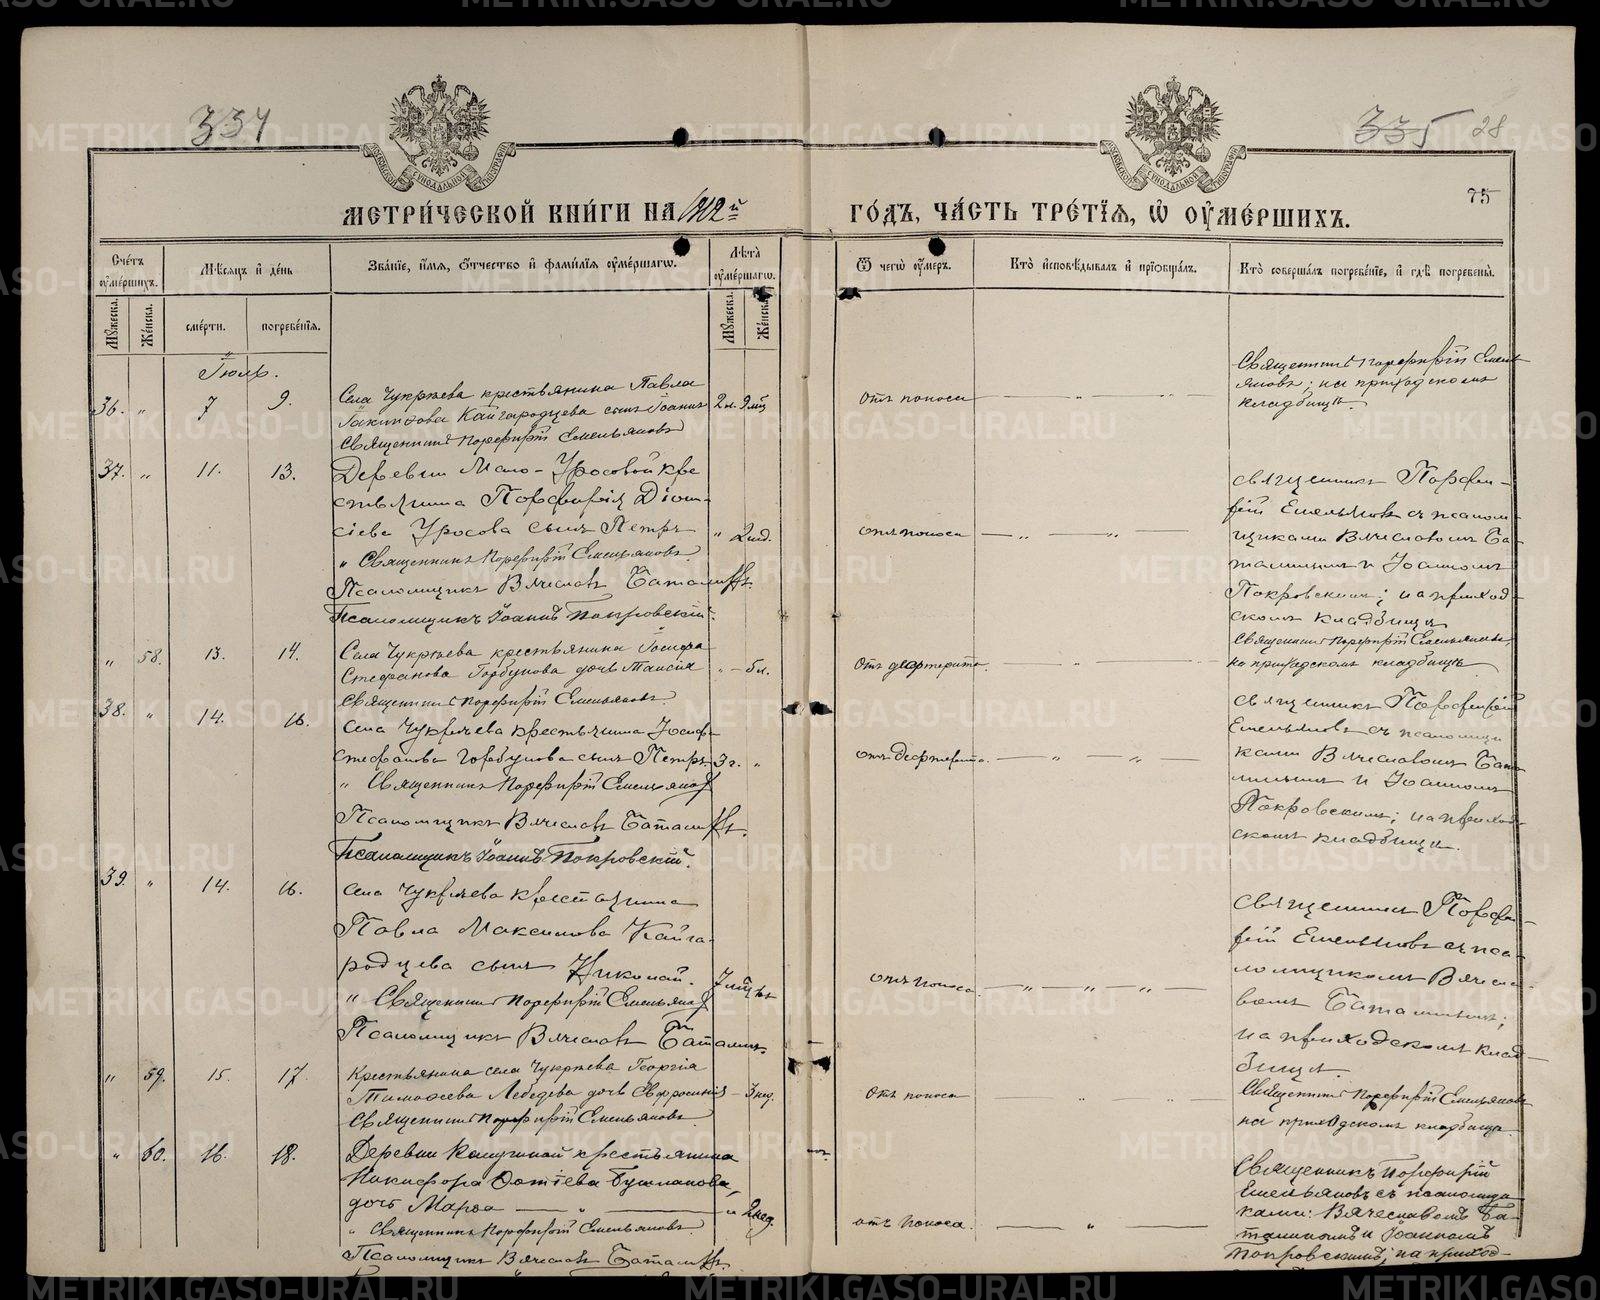 334
335 28
75
МЕТРИ́ЧЕСКОЙ КНИ́ГИ НА 1912й
ГО́ДЪ, ЧА́СТЬ ТРЕ́ТІѦ, Ѽ ОУ҆МЕ́РШИХЪ.
Сче́тъ оу҆ме́ршихъ.
Мѣ́сяцъ и҆ де́нь
Зва́нїе, и҆́мѧ, ѻ҆́тчество и҆ фами́лїѧ оу҆ме́ршагѡ.
Лѣ́та оу҆ме́ршагѡ.
Ѿ чегѡ̀ оу҆́меръ.
Кто̀ и҆сповѣ́дывалъ и҆ прїѡбща́лъ.
Кто̀ соверша́лъ погребе́нїе, и҆ гдѣ̀ погребены̀.
Мꙋ́жеска.
Же́нска.
сме́рти.
погребе́нїѧ.
Мꙋ́жеска.
Же́нска.
Іюль.
36. " 7 9.
Села Чукрѣева крестьянина Павла
Кайгородцева сынъ Іоаннъ
Священникъ Порфирій Емельяновъ
отъ поноса
Священникъ Порфирій Емель
яновъ; на приходскомъ
кладбищѣ.
37. " 11. 13.
Деревни Мало-Уросовой кре
стьянина Порфирія Діони-
сіева Уросова сынъ Петръ
" 2 нд.
" Священникъ Порфирій Емельяновъ
Псаломщикъ Вячеславъ Баталинъ.
Псаломщикъ Іоаннъ Покровскій.
отъ поноса
священникъ Порфи-
рій Емельяновъ съ псалом-
щиками Вячеславомъ Ба-
талинымъ и Іоанномъ
Покровскимъ; на приход-
скомъ кладбищѣ
" 58. 13. 14.
Села Чукрѣева крестьянина Іосифа
Стефанова Горбунова дочь Таисія
" – 5 л.
Священникъ Порфирій Емельяновъ
отъ дифтерита.
Священникъ Порфирій Емельяновъ,
на приходскомъ кладбищѣ
38. " 14. 16.
села Чукрѣева крестьянина Іосифа
Стефанова Горбунова сынъ Петръ
3 г. "
" Священникъ Порфирій Емельяновъ
Псаломщикъ Вячеславъ Баталинъ.
Псаломщикъ Іоаннъ Покровскій.
отъ дифтерита.
священникъ Порфирій
Емельяновъ съ псаломщи
ками Вячеславомъ Бата
линымъ и Іоанномъ
Покровскимъ; на приход-
скомъ кладбищѣ.
39. " 14. 16.
села Чукрѣева крестьянина
Павла Максимова Кайго-
родцева сынъ Николай.
" Священникъ Порфирій Емельяновъ
Псаломщикъ Вячеславъ Баталинъ.
отъ поноса.
священникъ Порфи-
рій Емельяновъ съ пса-
ломщикомъ Вячесла
вомъ Баталинымъ;
на приходскомъ клад-
бищѣ.
" 59. 15. 17.
Крестьянина села Чукрѣева Георгія
Тимофеева Лебедева дочь Евфросинія
– 3 нед.
Священникъ Порфирій Емельяновъ
отъ поноса
Священникъ Порфирій Емельяновъ
на приходскомъ кладбищѣ.
" 60. 16. 18.
Деревни крестьянина
Никифора
дочь Марфа
" 2 нед.
" Священникъ Порфирій Емельяновъ
Псаломщикъ Вячеславъ Баталинъ.
отъ поноса.
Священникъ Порфирій
Емельяновъ съ псаломщи
ками: Вячеславомъ Ба-
талинымъ и Іоанномъ
Покровскимъ; на приход-